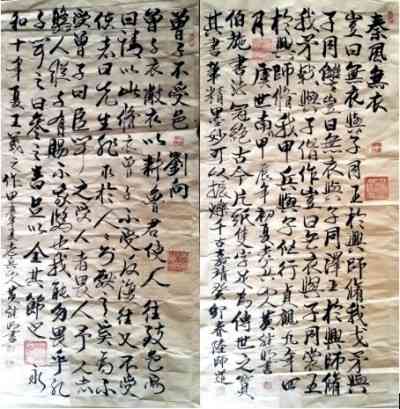 秦風無衣
豈曰無衣與子同王於興師脩我戈矛與
子同讎豈曰無衣與子同澤王於興師脩
我矛戟與子偕作豈曰無衣與子同裳王
於興師脩我甲兵與子偕行貞觀九年四
月虞世南甲辰年初夏
伯施書法冠絕古今片紙隻字足為傳世之寶
其書筆精墨妙可以振千古
曾子不受邑 劉向
曾子衣敝衣以耕魯君使人往致邑焉
曰請以此修衣曾子不受反復往又不受
使者曰先生非求於人人則獻之奚為不
受曾子曰臣聞之受人者畏人予人者
驕人縱子有賜不我驕也我能勿畏乎孔
子聞之曰參之言足以全其節也永
和十年夏王羲之作甲辰年書